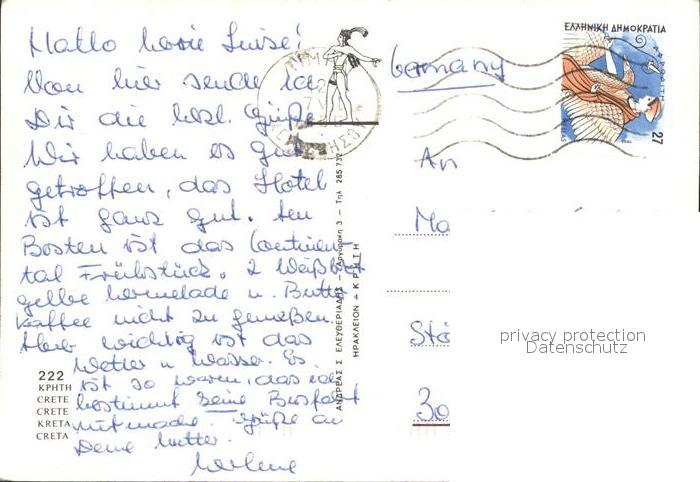 Hallo Marie Luise!
Von hier sende ich
Dir die herzl. Grüße
Wir haben es gut
getroffen, das Hotel
ist ganz gut. Am
Besten ist das Continen-
tal Frühstück. 2 Weißbrot
gelbe Marmelade u. Butter
Kaffee nicht zu genießen.
Aber wichtig ist das
Wetter u Wasser. Es
ist so warm, das ich
bestimmt keine
mitmache. Grüße an
Deine Mutter.
Marlene
222
ΚΡΗΤΗ
CRETE
CRETE
KRETA
CRETA
ΑΝΔΡΕΑΣ Σ. ΕΛΕΥΘΕΡΙΑΔΗΣ — Αργυράκη 3 — Τηλ. 285 739
ΗΡΑΚΛΕΙΟΝ - ΚΡΗΤΗ
Germany
ΕΛΛΗΝΙΚΗ ΔΗΜΟΚΡΑΤΙΑ
27
An
Ma
Stä
30
privacy protection
Datenschutz